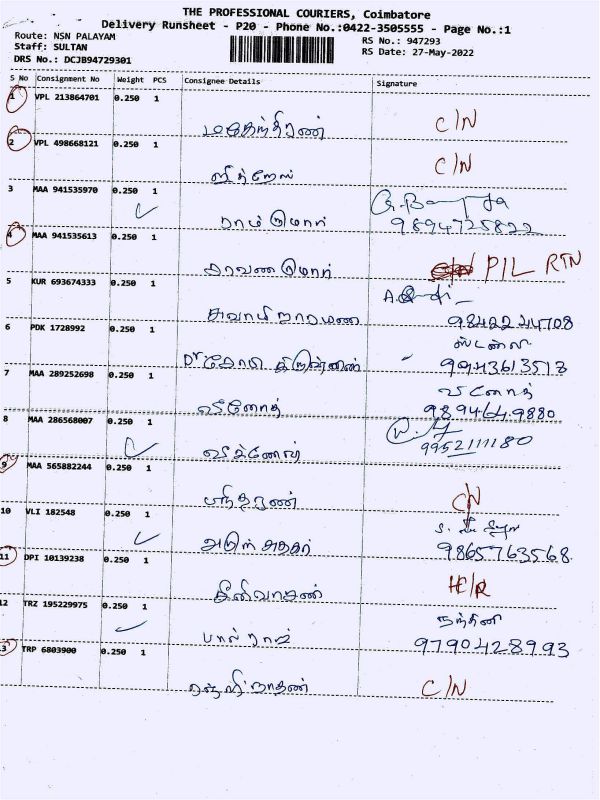 THE PROFESSIONAL COURIERS, Coimbatore
Delivery Runsheet - P20 - Phone No.:0422-3505555 - Page No.:1
Route: NSN PALAYAM
RS No.: 947293
Staff: SULTAN
RS Date: 27-May-2022
DRS No.: DCJB94729301
S No Consignment No Weight PCS Consignee Details Signature
1 VPL 213864701 0.250 1
C/N
2 VPL 498668121 0.250 1
C/N
3 MAA 941535970 0.250 1
ராம்குமார் 9894725822
4 MAA 941535613 0.250 1
சரவணகுமார் P/L RTN
5 KUR 693674333 0.250 1
9842244708
6 PDK 1728992 0.250 1
Dr 9943613513
7 MAA 289252698 0.250 1
வினோத்
வினோத் 989464.9880
8 MAA 286568007 0.250 1
விக்னேஷ் 9952111180
9 MAA 565882244 0.250 1
C/N
10 VLI 182548 0.250 1
9865763568
11 DPI 10139238 0.250 1
சீனிவாசன்
12 TRZ 195229975 0.250 1
நந்தினி
பால்ராஜ் 9790428993
13 TRP 6803900 0.250 1
C/N